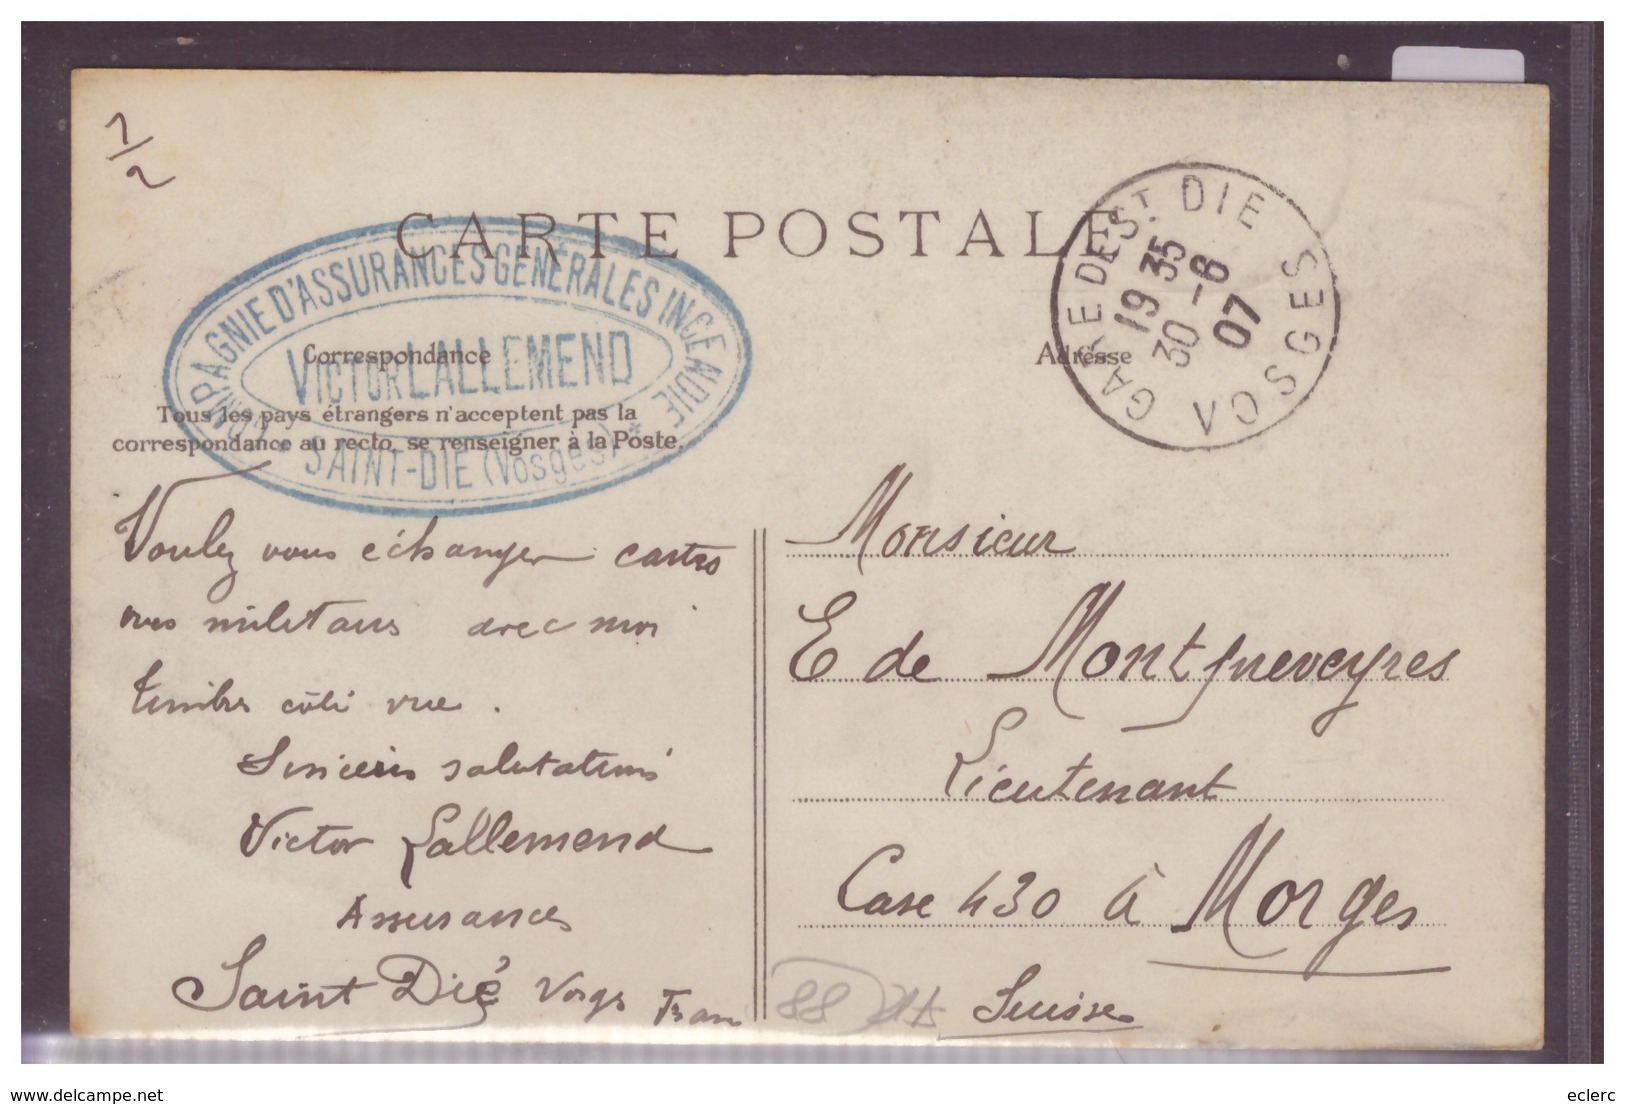 1/2
CARTE POSTALE
GARE DE ST. DIE VOSGES
19 35
30 -6
07
COMPAGNIE D'ASSURANCES GÉNÉRALES INCENDIE
VICTOR LALLEMEND
* SAINT-DIE (Vosges) *
Correspondance
Adresse
Tous les pays étrangers n'acceptent pas la
correspondance au recto, se renseigner à la Poste.
Voulez vous échanger cartes
vues militaires avec moi
timbre côté vue.
Sincères salutations
Victor Lallemend
Assurances
Saint Dié Vosges Fran
Monsieur
E de Montfreveyres
Lieutenant
Case 430 à Morges
Suisse
delcampe.net
eclerc